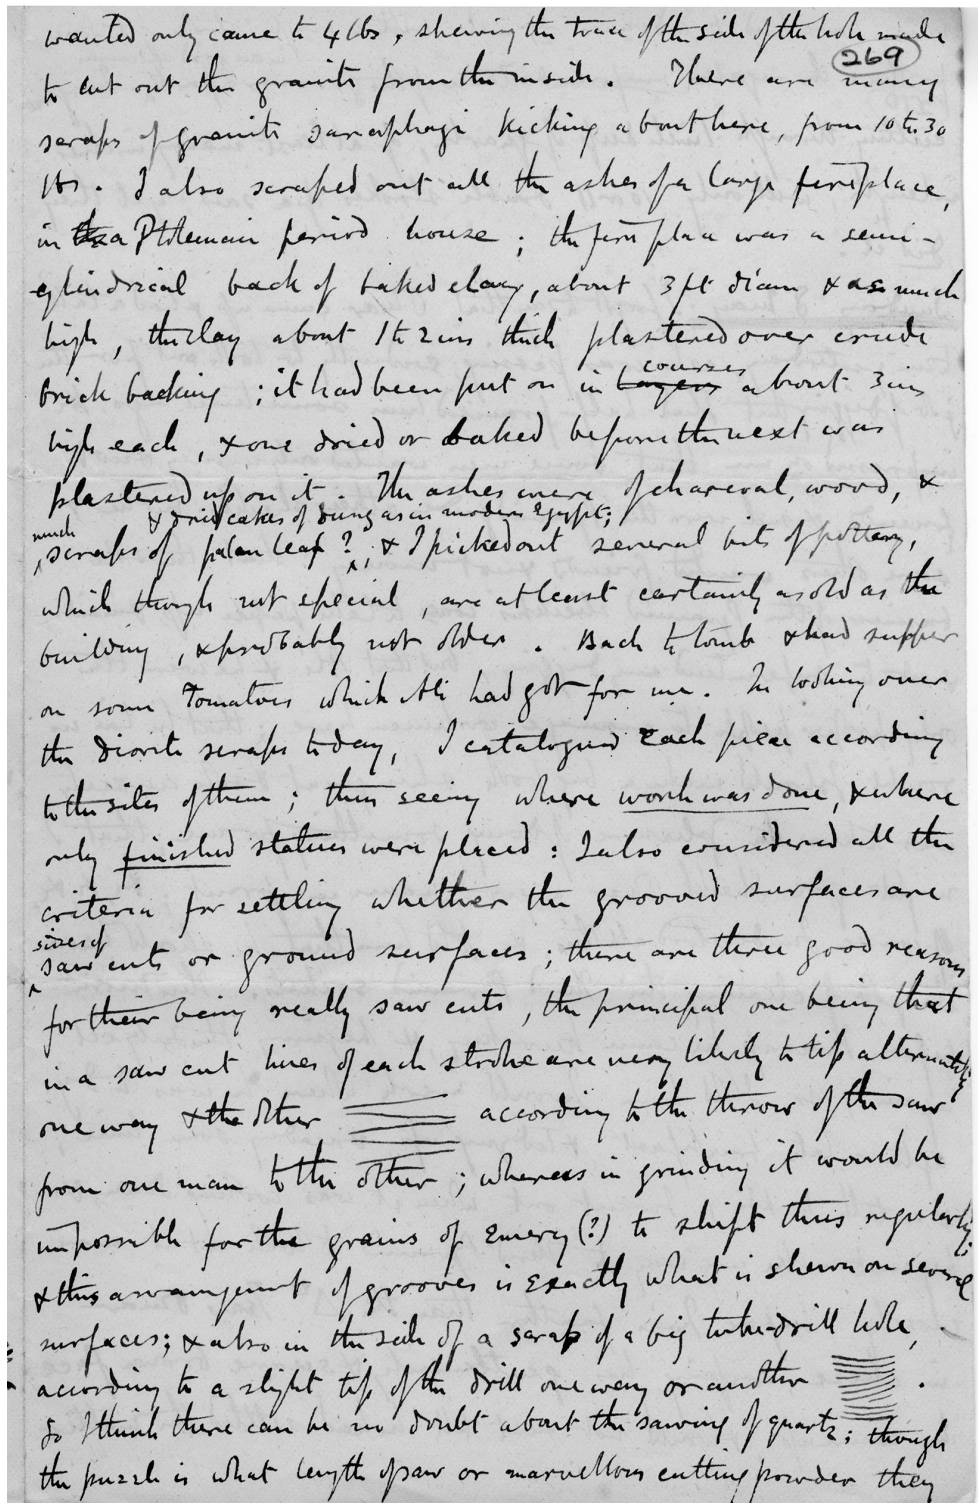 wanted only came to 4 lbs, shewing the trace of the side of the hole made
269
to cut out the granite from the inside. There are many
scraps of granite sarcophagi kicking about here, from 10 to 30
lbs. I also scraped out all the ashes of a large fireplace,
in the a Ptolemaic period house; the fire place was a semi-
cylindrical back of baked clay, about 3 ft diam & as much
high, the clay about 1 to 2 ins thick plastered over crude
courses
brick backing; it had been put on in layers about 3 ins
high each, & one dried or baked before the next was
plastered up on it. The ashes were of charcoal, wood, &
& dried cakes of dung as in modern Egypt;
much
scraps of palm leaf?, & I picked out several bits of pottery,
which though not special, are at least certainly as old as the
building, & probably not older. Back to tomb & had supper
on some Tomatoes which Ali had got for me. In looking over
the diorite scraps today, I catalogued each piece according
to the sites of them; thus seeing where work was done, & where
only finished statues were placed: I also considered all the
criteria for settling whether the grooved surfaces are
sides of
saw cuts or ground surfaces; there are three good reasons
for their being really saw cuts, the principal one being that
in a saw cut lines of each stroke are very likely to tip alternately
one way & the other according to the throw of the saw
from one man to the other; whereas in grinding it would be
impossible for the grains of Emery (?) to shift thus regularly;
& this arrangement of grooves is exactly what is shewn on several
surfaces; & also in the side of a scrap of a big tube-drill hole,
according to a slight tip of the drill one way or another .
So I think there can be no doubt about the sawing of quartz; though
the puzzle is what length of saw or marvellous cutting powder they